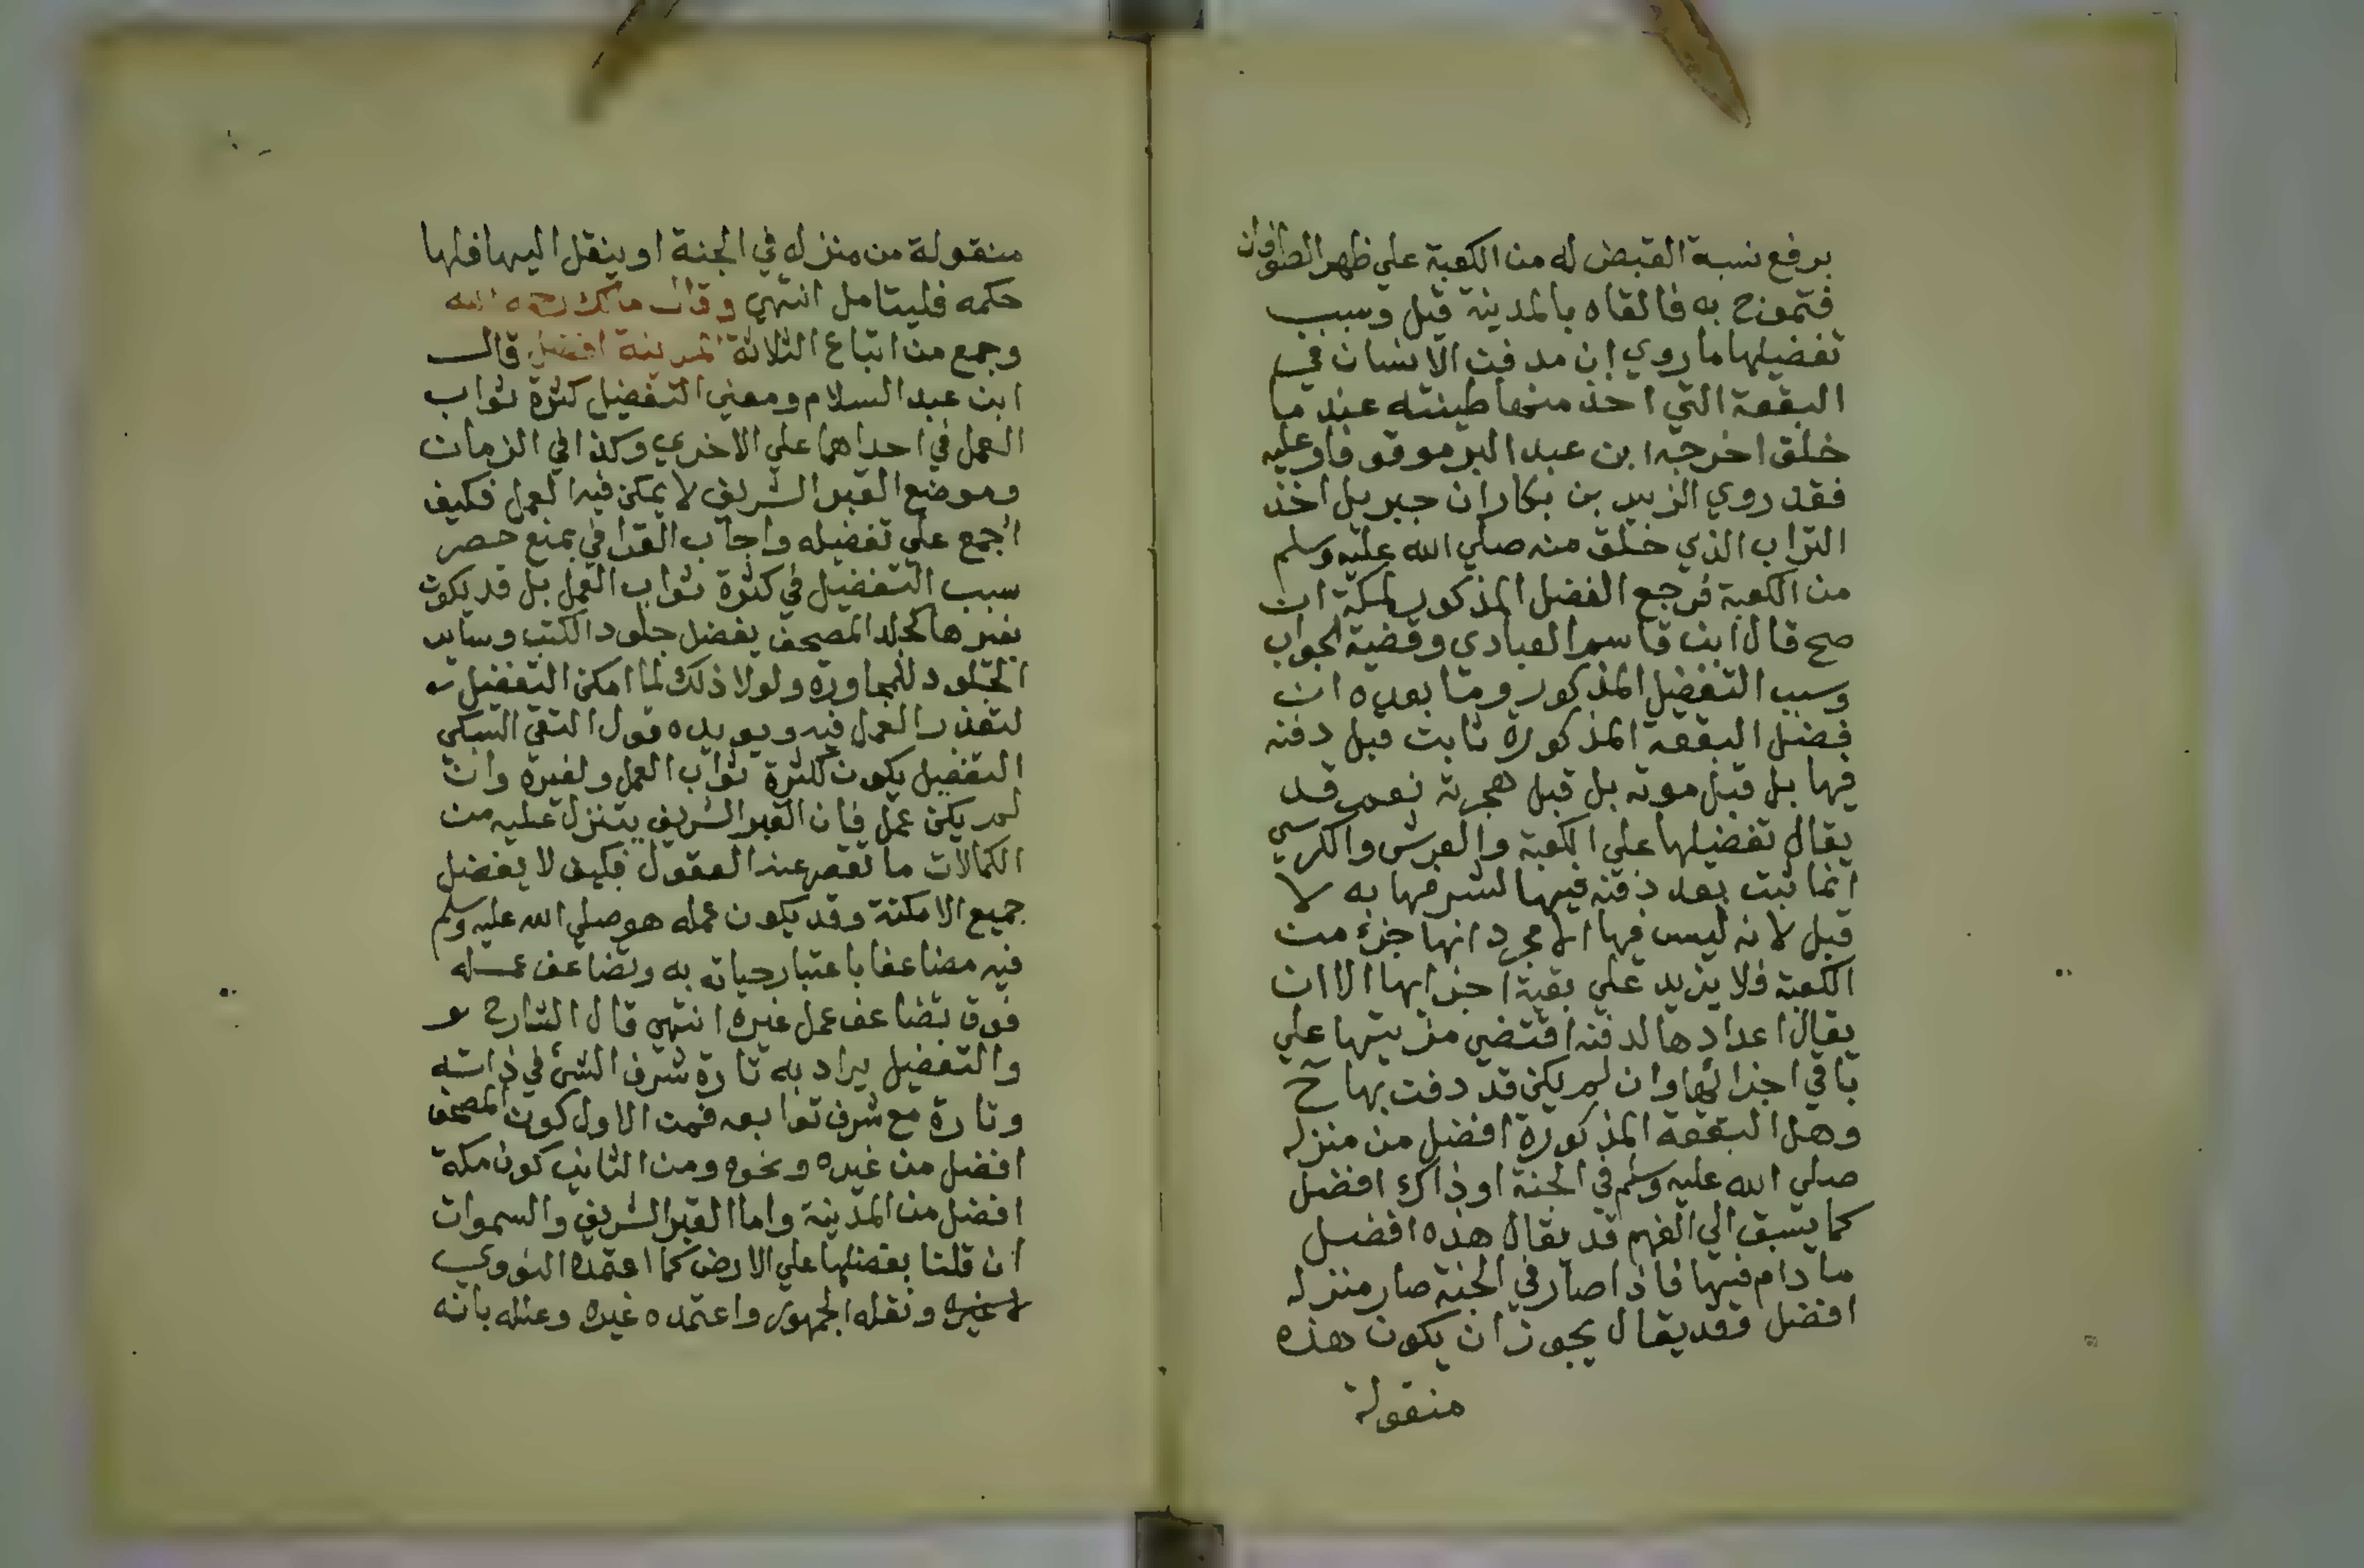 برفع نسبة القبض له من الكعبة علي ظهر الطوفان
فتموج به فالقاه بالمدينة قيل وسبب
تفضيلها ما روي ان مدفن الانسان في
البقعة التي اخذ منها طينته عند ما
خلق اخرجه ابن عبد البر موقوفا وعليه
فقد روي الزبير بن بكار ان جبريل اخذ
التراب الذي خلق منه صلي الله عليه وسلم
من الكعبة فرجع الفضل المذكور لمكة ان
صح قال ابن قاسم العبادي وقضية الجواب
وسبب التفضيل المذكور وما بعده ان
فضل البقعة المذكورة ثابت قبل دفنه
فيها بل قبل موته بل قبل هجرته نعم قد
يقال تفضيلها علي الكعبة والعرش والكرسي
انما ثبت بعد دفنه فيها لشرفها به لا
قبل لانه ليس فيها الا مجرد انها جزء من
الكعبة فلا يزيد علي بقية اجزايها الا ان
يقال اعدادها لدفنه اقتضي مزيتها علي
باقي اجزائها وان لم يكن قد دفن بها ح
وهل البقعة المذكورة افضل من منزله
صلي الله عليه وسلم في الجنة او ذاك افضل
كما يسبق الي الفهم قد يقال هذه افضل
ما دام فيها فاذا صار في الجنة صار منزله
افضل فقد يقال يجوز ان يكون هذه
منقولة
منقولة من منزله في الجنة او ينقل اليها فلها
حكمه فليتامل انتهي وقال مالك رحمه الله
وجمع من اتباع الثلاثة المدينة افضل قال
ابن عبد السلام ومعني التفضيل كثرة ثواب
العمل في احداهما علي الاخري وكذا في الزمان
وموضع القبر الشريف لا يمكن فيه العمل فكيف
اجمع علي تفضيله واجاب القرافي بمنع حصر
سبب التفضيل في كثرة ثواب العمل بل قد يكون
بغيرها كجلد المصحف يفضل جلود الكتب وساير
الجلود للمجاورة ولولا ذلك لما امكن التفضيل
لتعذر العمل فيه ويويده قول التقي السبكي
التفضيل يكون لكثرة ثواب العمل ولغيره وان
لم يكن عمل فان القبر الشريف يتنزل عليه من
الكمالات ما تقصر عنه العقول فكيف لا يفضل
جميع الامكنة وقد يكون عمله هو صلي الله عليه وسلم
فيه مضاعفا باعتبار حياته به وتضاعف عمله
فوق تضاعف عمل غيره انتهي قال الشارح
والتفضيل يراد به تارة شرف الشئ في ذاته
وتارة مع شرف توابعه فمن الاول كون المصحف
افضل من غيره ونحوه ومن الثاني كون مكة
افضل من المدينة واما القبر الشريف والسموات
ان قلنا بفضلها علي الارض كما اعتمده النووي
لا غيره ونقله الجمهور واعتمده غيره وعلله بانه